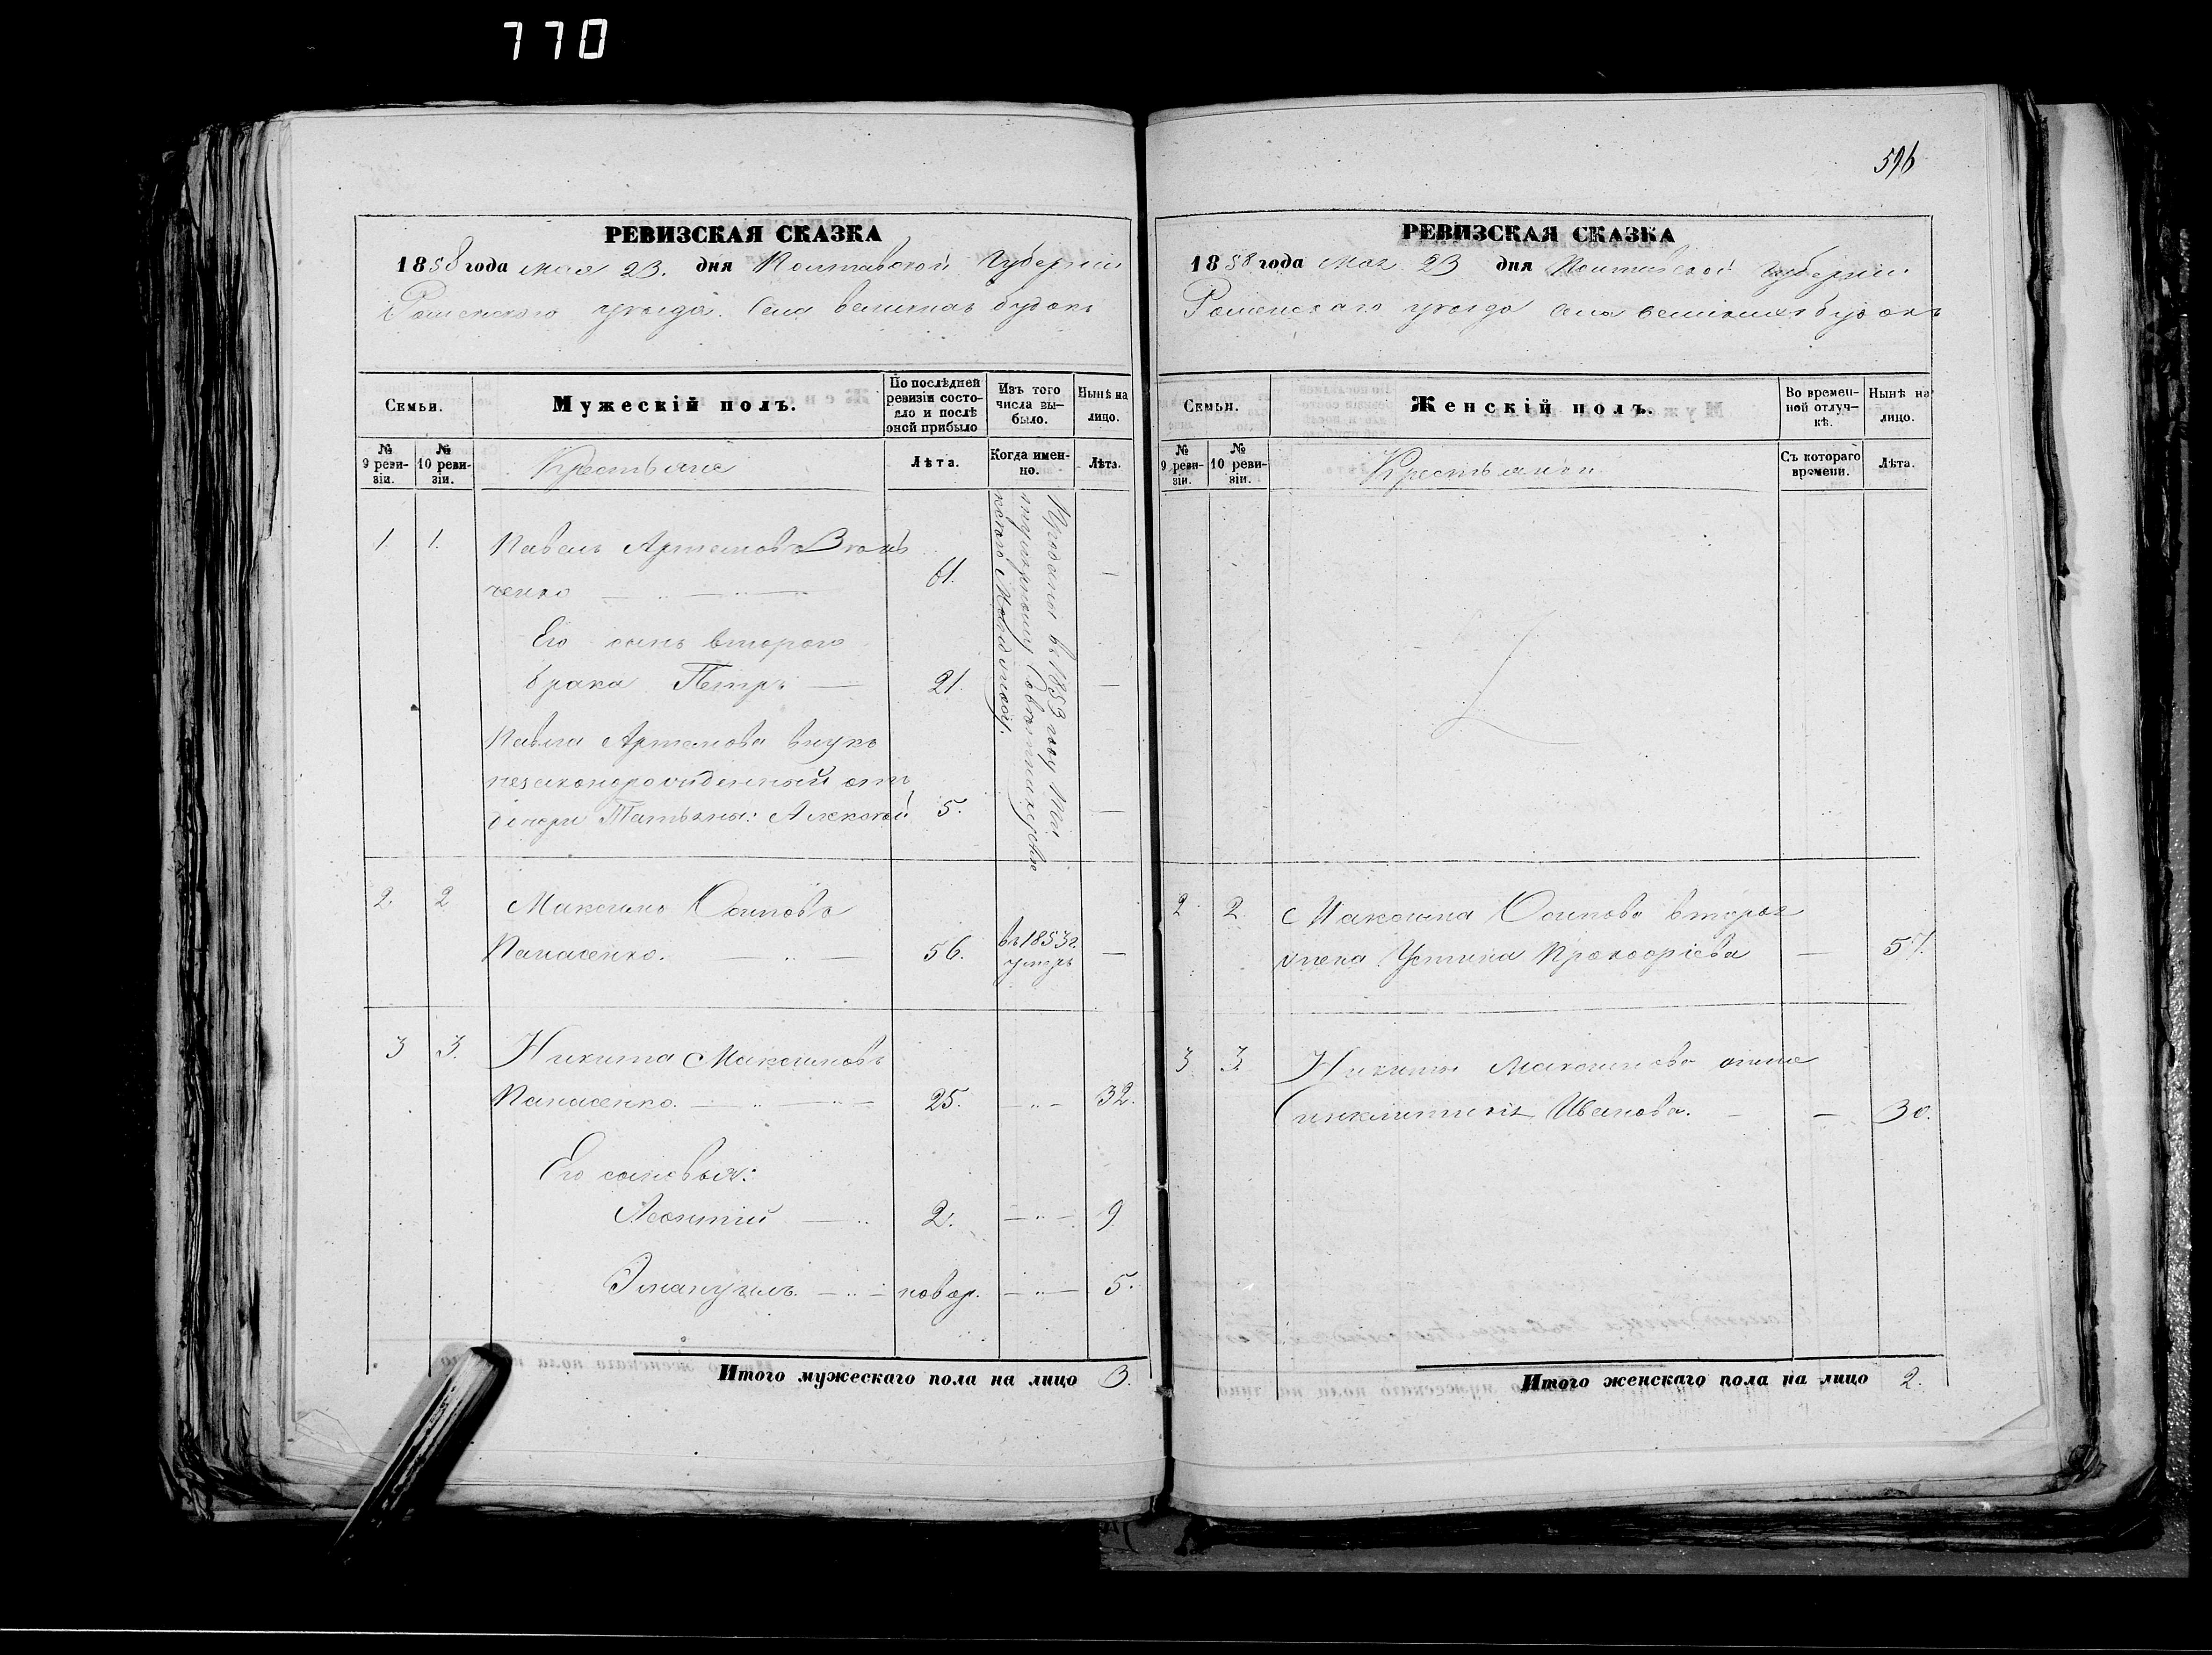 770
РЕВИЗСКАЯ СКАЗКА
1858 года мая 23. дня Полтавской Губерніи
Роменского уѣзда. Села великихъ будокъ
Семьи.
Мужескій полъ.
По послѣдней ревизіи состояло и послѣ оной прибыло
Изъ того числа выбыло.
Нынѣ на лицо.
№ 9 ревизіи.
№ 10 ревизіи.
Крестьяне
Лѣта.
Когда именно.
Лѣта.
1. 1. Павелъ Артемовъ
ченко 61. —
Его сынъ второго
брака Петръ — 21. —
Павла Артемова внукъ
незаконорожденный отъ
дочери Татьяны: Алексѣй 5. —
Проданы въ 1853 году
титулярному Совѣтнику
2. 2 Максимъ Осиповъ
Панасенко. — 56. въ 1853 г. умеръ —
3 3. Никита Максимовъ
Панасенко. — 25. — 32.
Его сыновья:
Леонтій — 2. — 9
Эмануилъ. — новор. — 5.
Итого мужескаго пола на лицо 3.
596
РЕВИЗСКАЯ СКАЗКА
1858 года мая 23 дня Полтавской Губерніи
Роменскаго уѣзда села великихъ будокъ
Семьи.
Женскій полъ.
Во временной отлучкѣ.
Нынѣ на лицо.
№ 9 ревизіи.
№ 10 ревизіи.
Крестьянки
Съ котораго времени.
Лѣта.
2. 2. Максима Осипова вторая
жена Устина Прокофіева — 57.
3 3. Никиты Максимова жена
Синклитикія Иванова. — 30.
Итого женскаго пола на лицо 2.